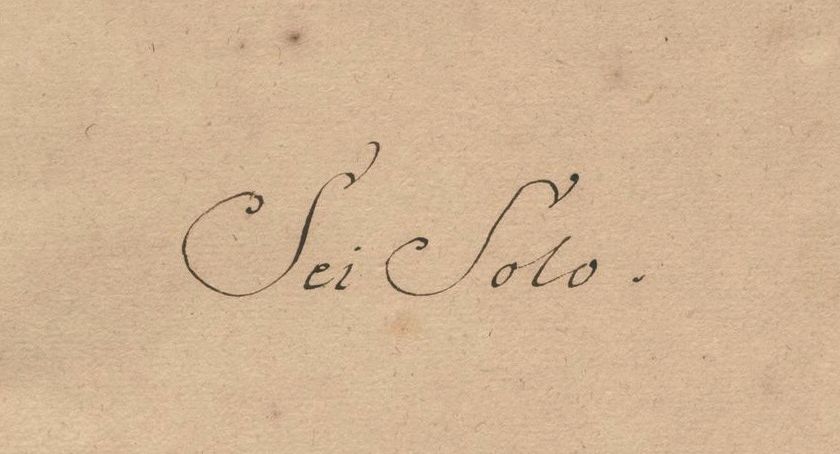 Sei Solo.